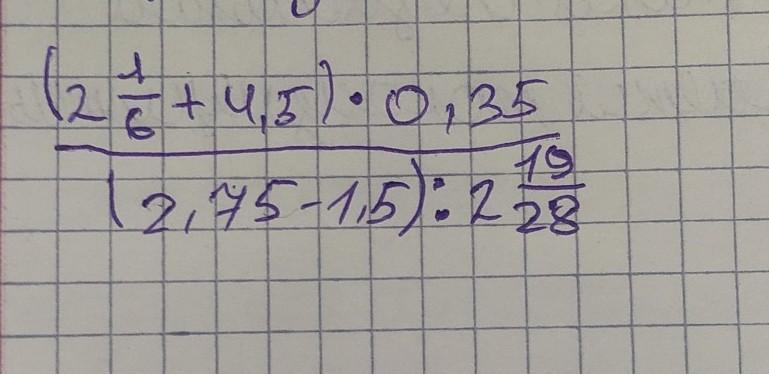 (2 1/6 + 4,5) · 0,35
(2,75 - 1,5) : 2 19/28